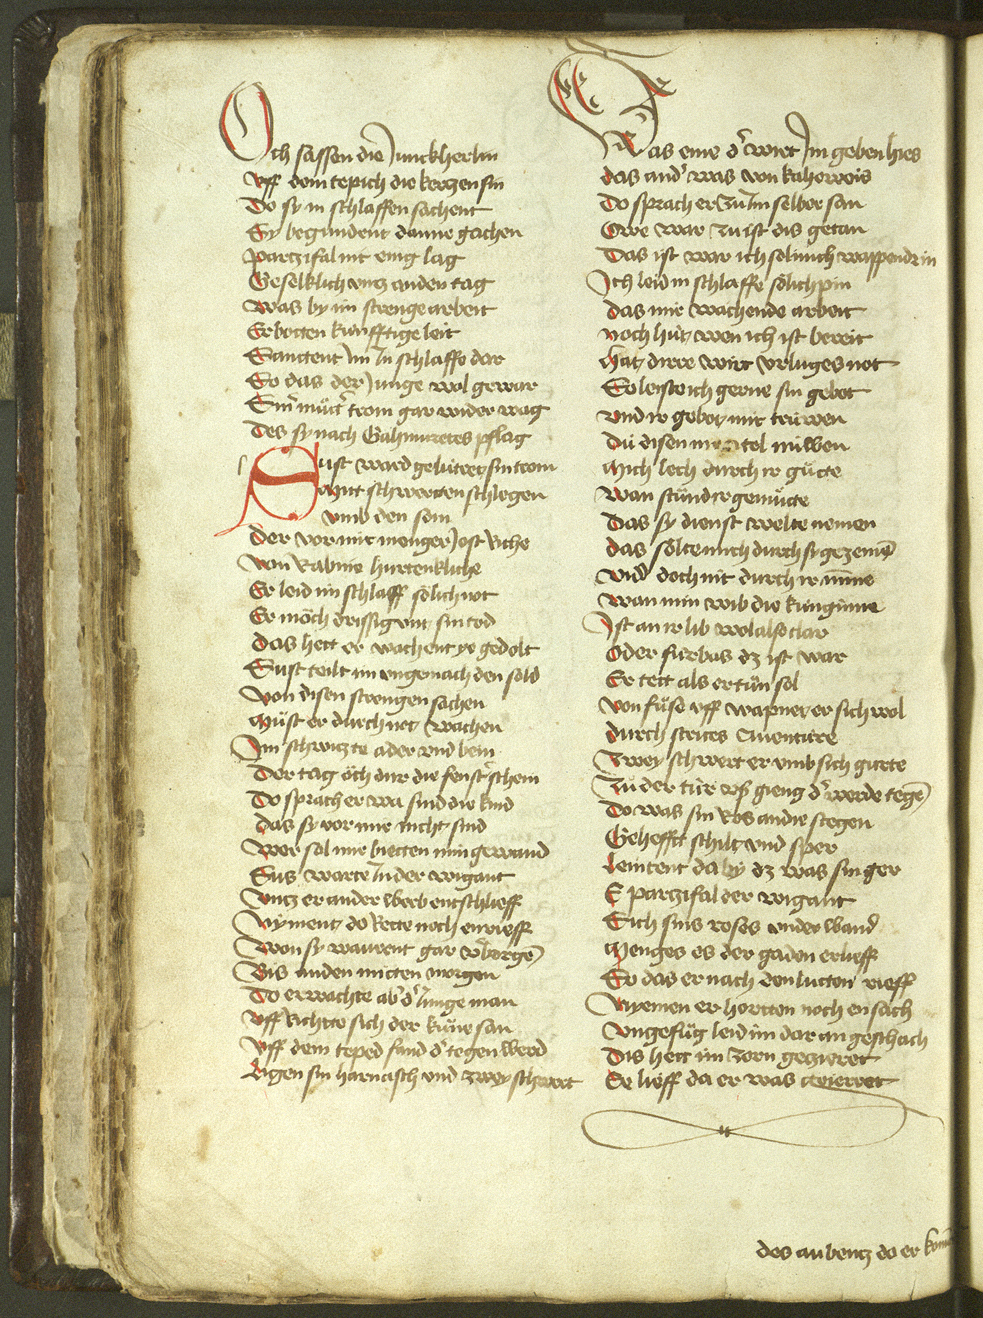 Och sassen die Junckherlin
Vff dem tepich die kerczen sin
Do sy in schlaffen sachent
Sy begundent danne gachen
Parczifal nit einig lag
Geselklich vncz an den tag
Was by im strenge arbeit
Er botten kunfftige leit
Santtent im In schlaffe dar
So das der Junge wol gewar
Sinr můtr trom gar wider wag
Des sy nach Gahmuretes pflag
Sust ward gelútret sin trom
Mitt schwerten schlegen
vmb den som
Der vor mit menger Jost riche
Von Rabine hurtenkliche
Er leid im schlaff sölich not
Er möch drissig vnt sin tod
Das hett er wachent ye gedolt
Sust teilt im vngemach den sold
Von disen strengen sachen
Můst er durch not wachen
Im schwiczte ader vnd bein
Der tag öch dur die fenstr schein
Do sprach er wa sind die kind
das sy vor mir nicht sind
Wer sol mir bietten min gewand
Sus warte In der wigant
Vncz er ander werb entschlieff
Nyment do Rette noch enrieff
Won sy warrent gar vrborgē
Bis an den mitten morgen
Do erwachte ab dr Junge man
Vff Richtte sich der kúne san
Vff dem teped fand dr tegen werd
Ligen sin harnasch vnd zwey schwert
Was eine dr wirt Im geben hies
das andr was von kahewis
Do sprach er zu Im selber san
Owe war zu ist dis getan
Das ist war ich sol mich wappendrin
Ich leid in schlaffe sölich pin
das mir wachende arbeit
noch hút wen ich ist bereit
hat dirre wirt vrluges not
So leist ich gerne sin gebot
vnd ir gebot mit trúwen
Dú disen mantel núwen
Mich lech durch ir gútte
Wan stúnd ir gemútte
Das sy dienst welte nemen
das sölte mich durch sy gezemē
vnd doch nit durch ir minne
Wan min wib die kúnginne
Ist an ir lib wol also clar
Oder fúrbas dz ist war
Er tett als er tůn sol
von fůse vff wapnet er sich wol
durch strites Auentúre
Zwey schwert er vmb sich gurte
Zů der túr vs gieng dr werde tegē
Do was sin Ros an die stegen
Gehefftt schilt vnd sper
leintent da by dz was sin ger
E parczifal der wigant
Sich sins roses vnderwand
Menges es der gaden erlieff
So das er nach den lútten rieff
Nyemen er hortten noch ensach
Vngefůg leid im dar an geschach
Dis hett im zorn gezieret
Er lieff da er was
des aubencz do er kom